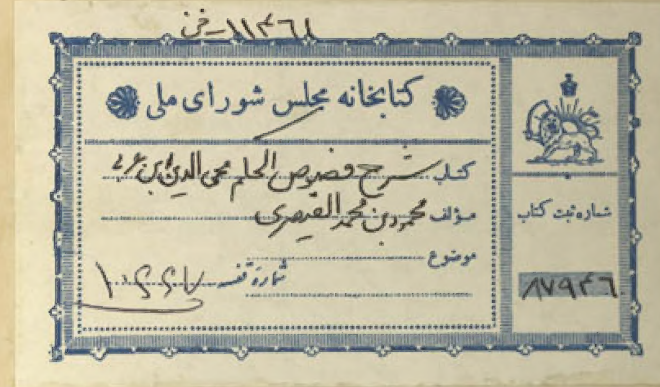 کتابخانه مجلس شورای ملی
کتاب شرح فصوص الحکم محی الدین ابن عربی
مؤلف محمود بن محمد القیصری
موضوع
شماره قفسه
شماره ثبت کتاب
۸۷۹۴۶